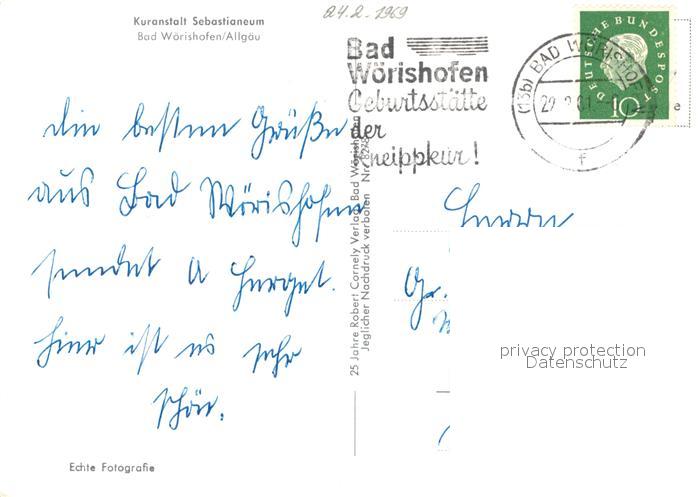 24.2.1969
Kuranstalt Sebastianeum
Bad Wörishofen/Allgäu
Bad
Wörishofen
Geburtsstätte
der
Kneippkur!
(13b) BAD WÖRISHOF
f
DEUTSCHE BUNDESPOST
10
die besten Grüße
aus Bad Wörishofen
sendet A Herget.
hier ist es sehr
schön.
25 Jahre Robert Cornely Verlag, Bad Wörishofen
Jeglicher Nachdruck verboten Nr.
Herrn
Gr.
privacy protection
Datenschutz
Echte Fotografie